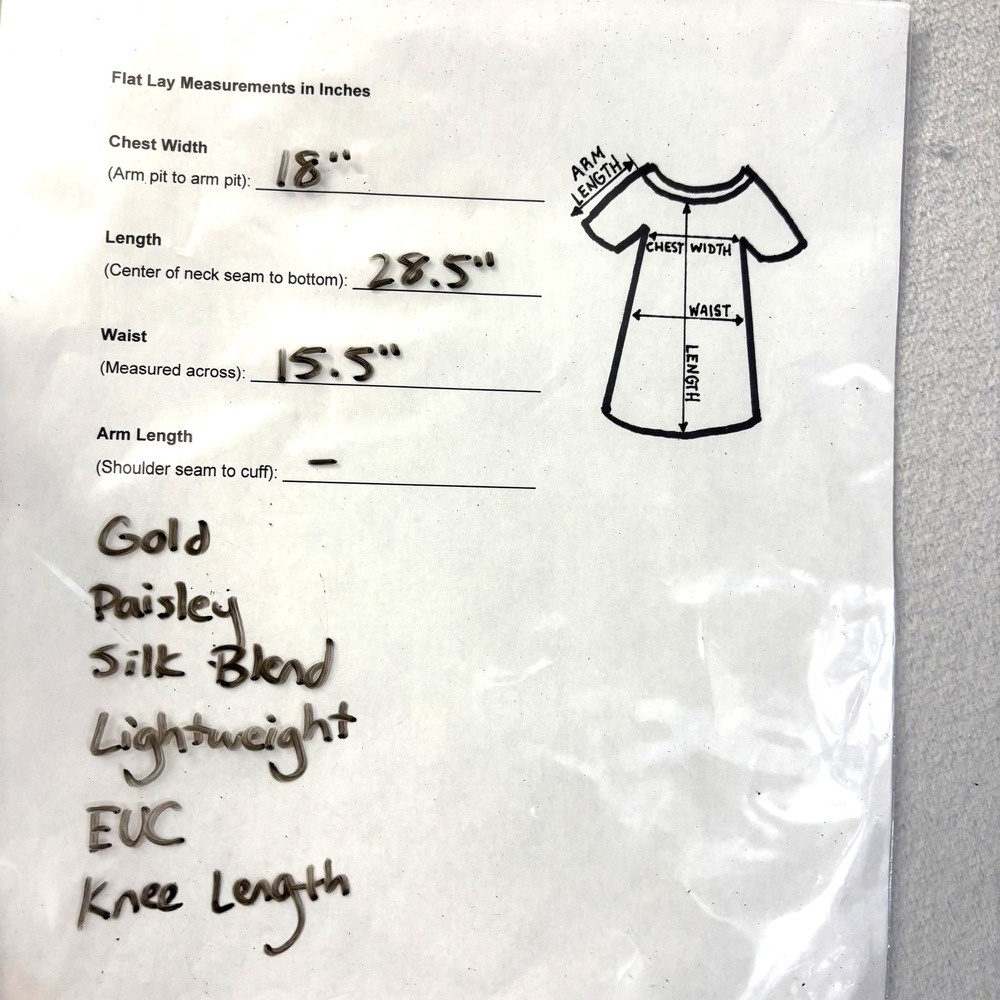 Flat Lay Measurements in Inches
Chest Width
(Arm pit to arm pit): 18"
Length
(Center of neck seam to bottom): 28.5"
Waist
(Measured across): 15.5"
Arm Length
(Shoulder seam to cuff): –
Gold
Paisley
Silk Blend
Lightweight
EUC
Knee Length
ARM
LENGTH
CHEST WIDTH
WAIST
LENGTH